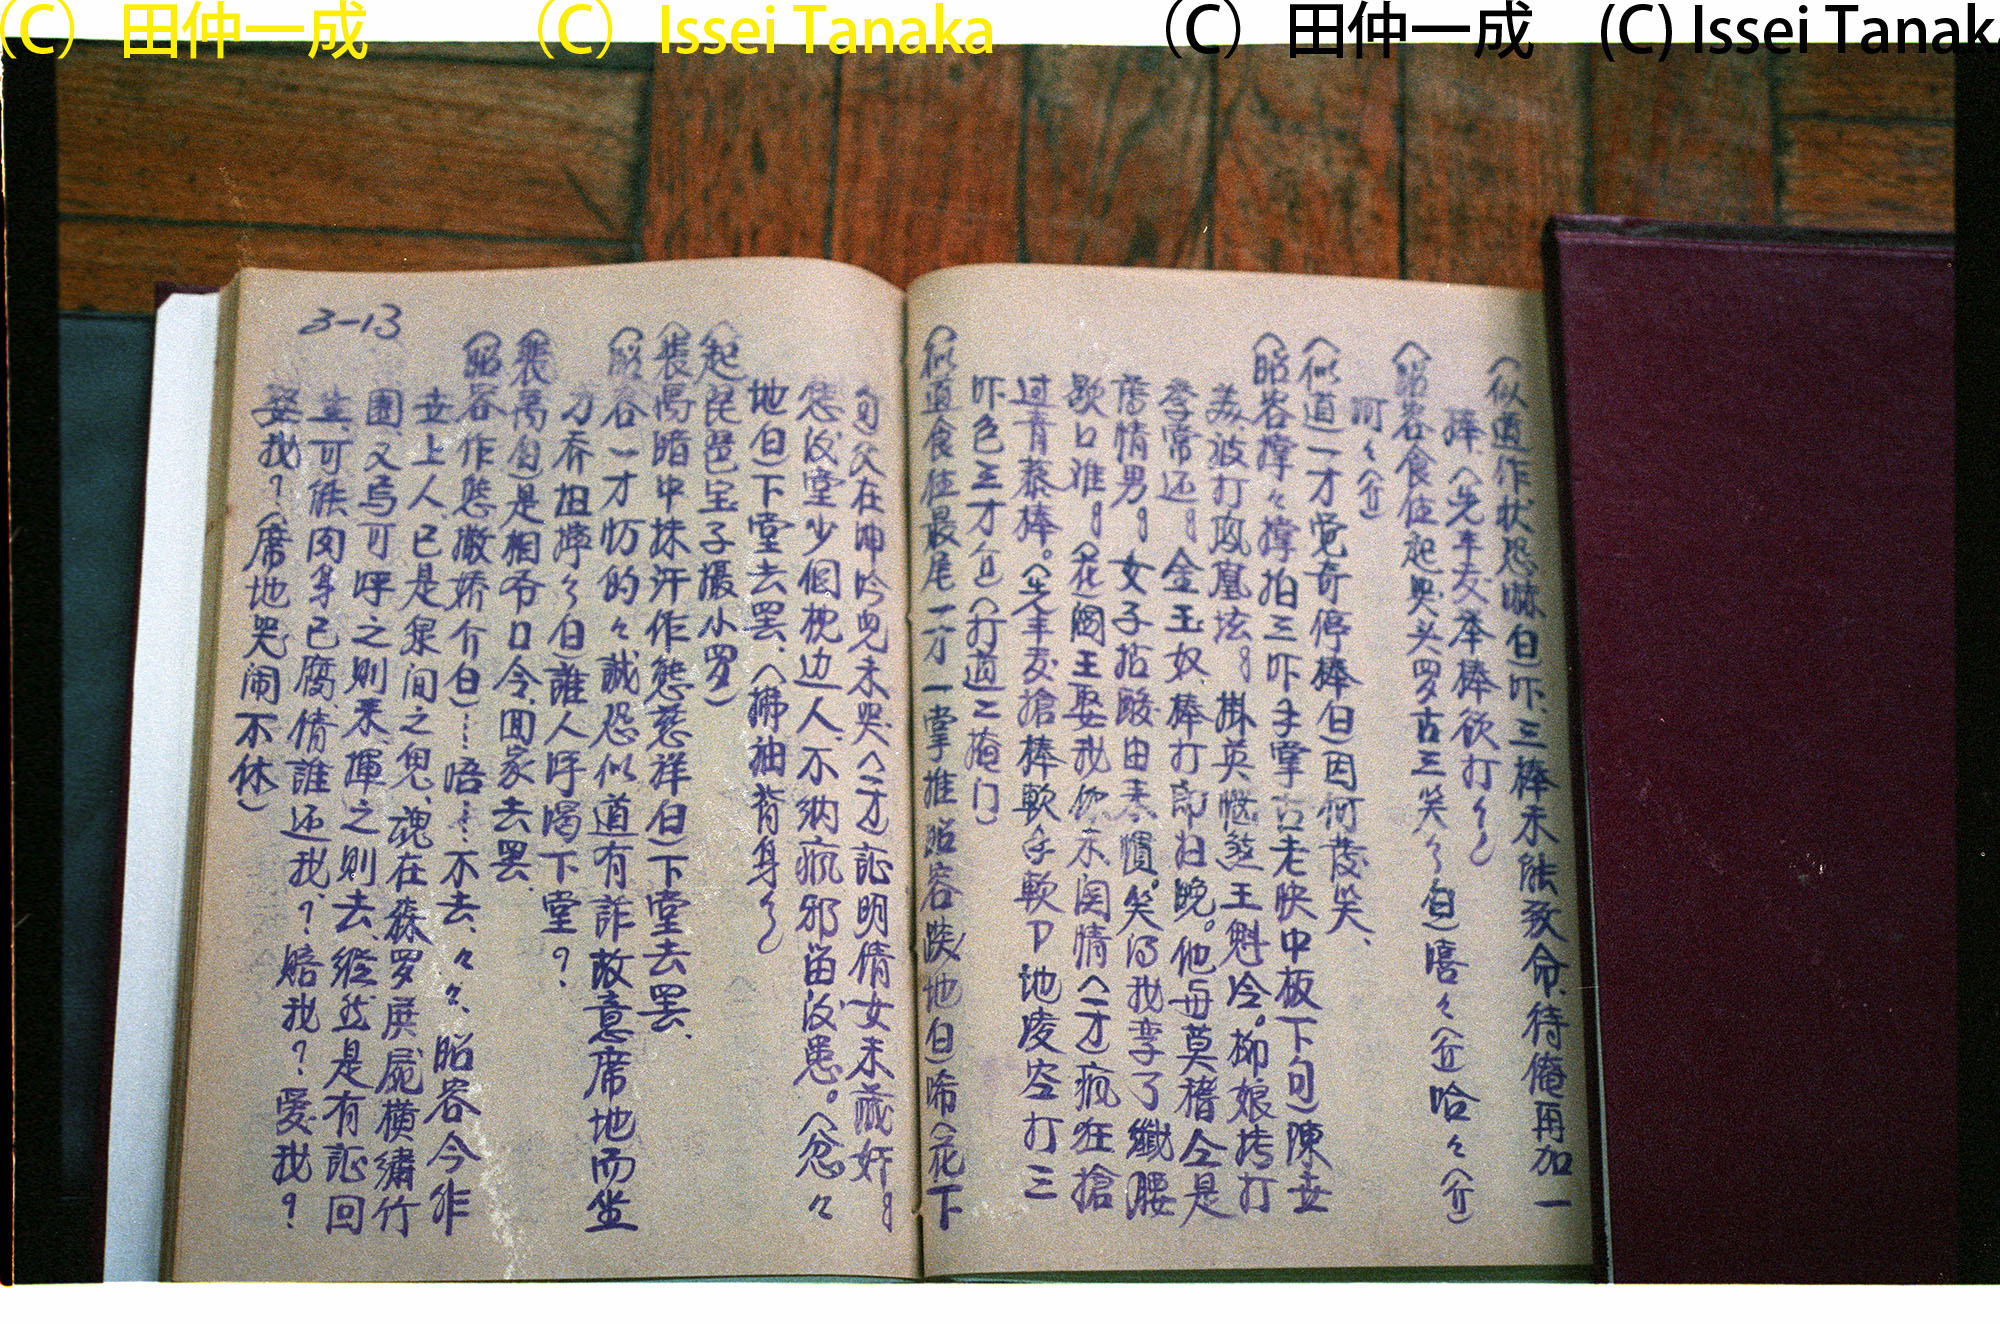 (C) 田仲一成 (C) Issei Tanaka (C) 田仲一成 (C) Issei Tanaka
(似道作状恐嚇白)吓、三棒未能致命、待俺再加一
棒、(先䒤友举棒欲打
(昭容食住起哭头罗古三笑 白)嘻々(介)哈々(介)
呵々(介)
(似道一才觉奇停棒白)因何发笑、
(昭容撑々撑拍三吓手掌古老快中板下句)陳世
美放打凤凰坛。掛英愀煞王魁冷。柳娘拷打
李常还。金玉奴、棒打郎归晚。他毋莫稽仝是
旧情男。女子拈酸由来惯。笑得我李了纖腰
歇口难。(花阎王娶我你未関情(一才疯狂搶
过青蔡棒。(先䒤友搶棒軟手軟下地凌空打三
吓色三才介(打道二掩门)
(似道食住最尾一才一掌推昭容跌地白)唏(花下
句父在呻吟児未哭(一才証明倩女未藏奸。
恁没堂少個枕边人、不納疯邪留後患。(忿々
地白)下堂去罢、(拂袖背身
(起琵琶宝子撮小罗)
(裴禹暗中抹汗作態慈祥白)下堂去罢、
(昭容一才忉的々、誠恐似道有詐故意席地而坐
力吞担擰 白)誰人呼喝下堂?
(裴禹白)是相爷口令、回家去罢、
(昭容作態撒娇介白)……唔……不去、々々、昭容今非
世上人、已是泉间之鬼、魂在森罗屏屍横繡竹
園、又焉可呼之則来揮之則去、縱然是有証回
生、可能肉身已腐、倩誰还我?賠我?愛我?
娶我?(席地哭闹不休)
3-13